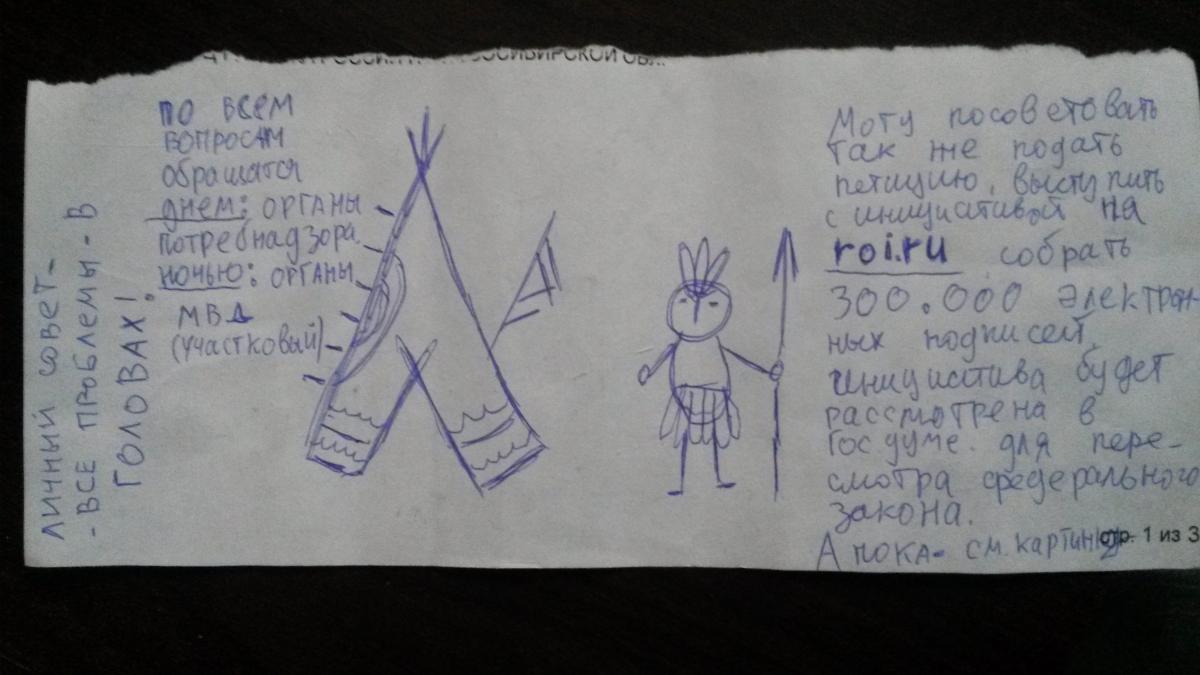 СИБИРСКОЙ
ЛИЧНЫЙ СОВЕТ -
- ВСЕ ПРОБЛЕМЫ - В
ГОЛОВАХ!
ПО ВСЕМ
ВОПРОСАМ
обращатся
днем: ОРГАНЫ
потребнадзора.
ночью: ОРГАНЫ
МВД
(участковый)
Могу посоветовать
так же подать
петицию, выступить
с инициативой на
roi.ru собрать
300.000 электрон
ных подписей,
инициатива будет
рассмотрена в
Гос думе. для пере-
смотра федерального
закона.
А пока - см. картинку
стр. 1 из 3